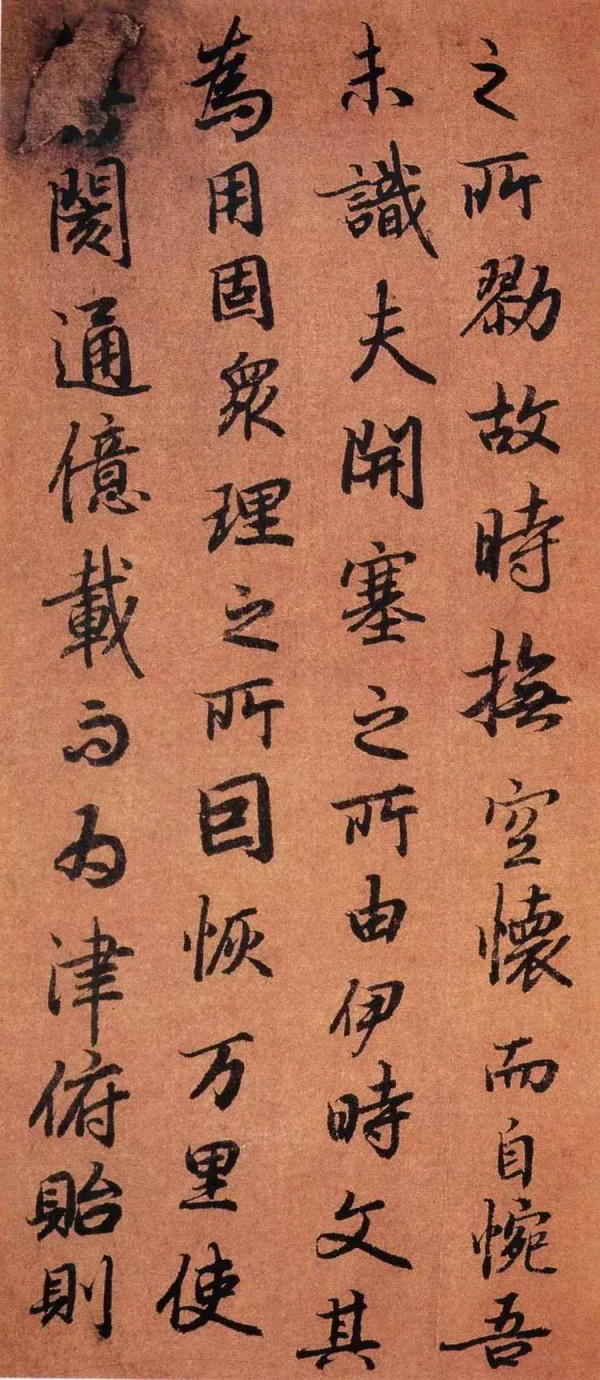 之所勠故時撫空懷而自惋吾
未識夫開塞之所由伊時文其
為用固眾理之所因恢万里使
閡通億載而為津俯貽則